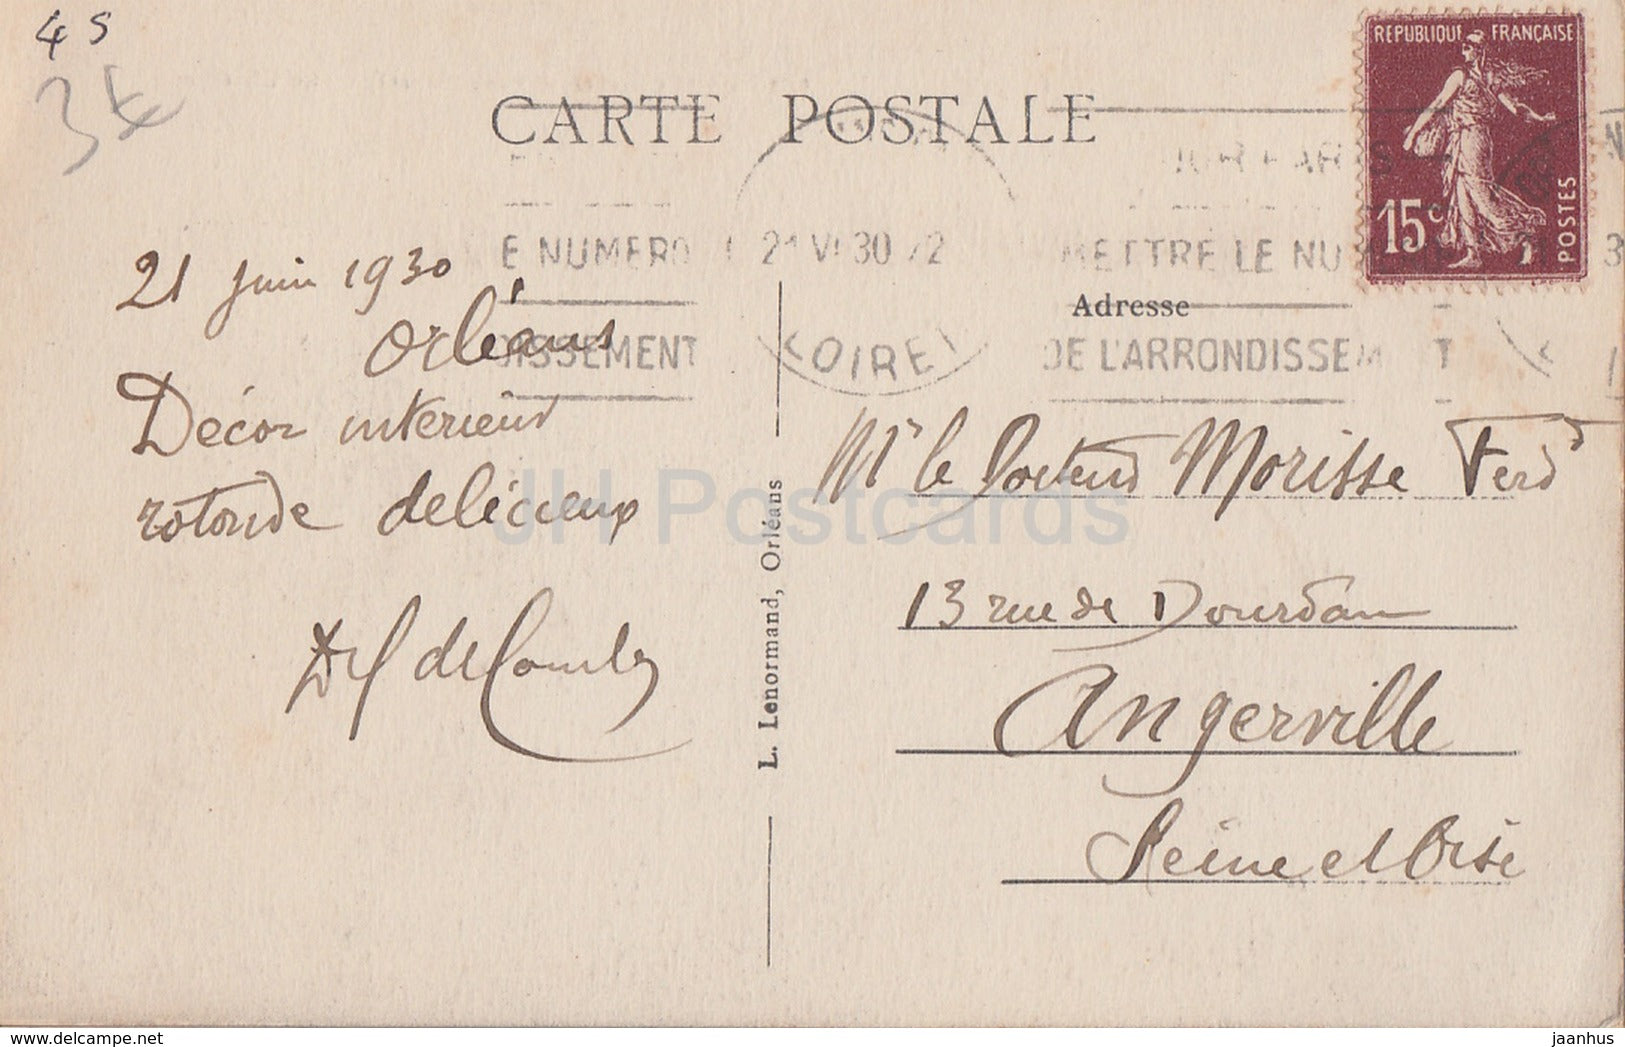 4 5
3€
CARTE POSTALE
REPUBLIQUE FRANÇAISE
15c
POSTES
SUR PARIS
E NUMERO
21 VI 30
METTRE LE NU
DISSEMENT
LOIRET
DE L'ARRONDISSEM T
21 juin 1930
Orléans
Décor interieur
rotonde delicieux
de
Adresse
Mr le Docteur Morisse Ferd
13 rue de Dourdan
Angerville
Seine et Oise
L. Lenormand, Orléans
JH Postcards
jaanhus